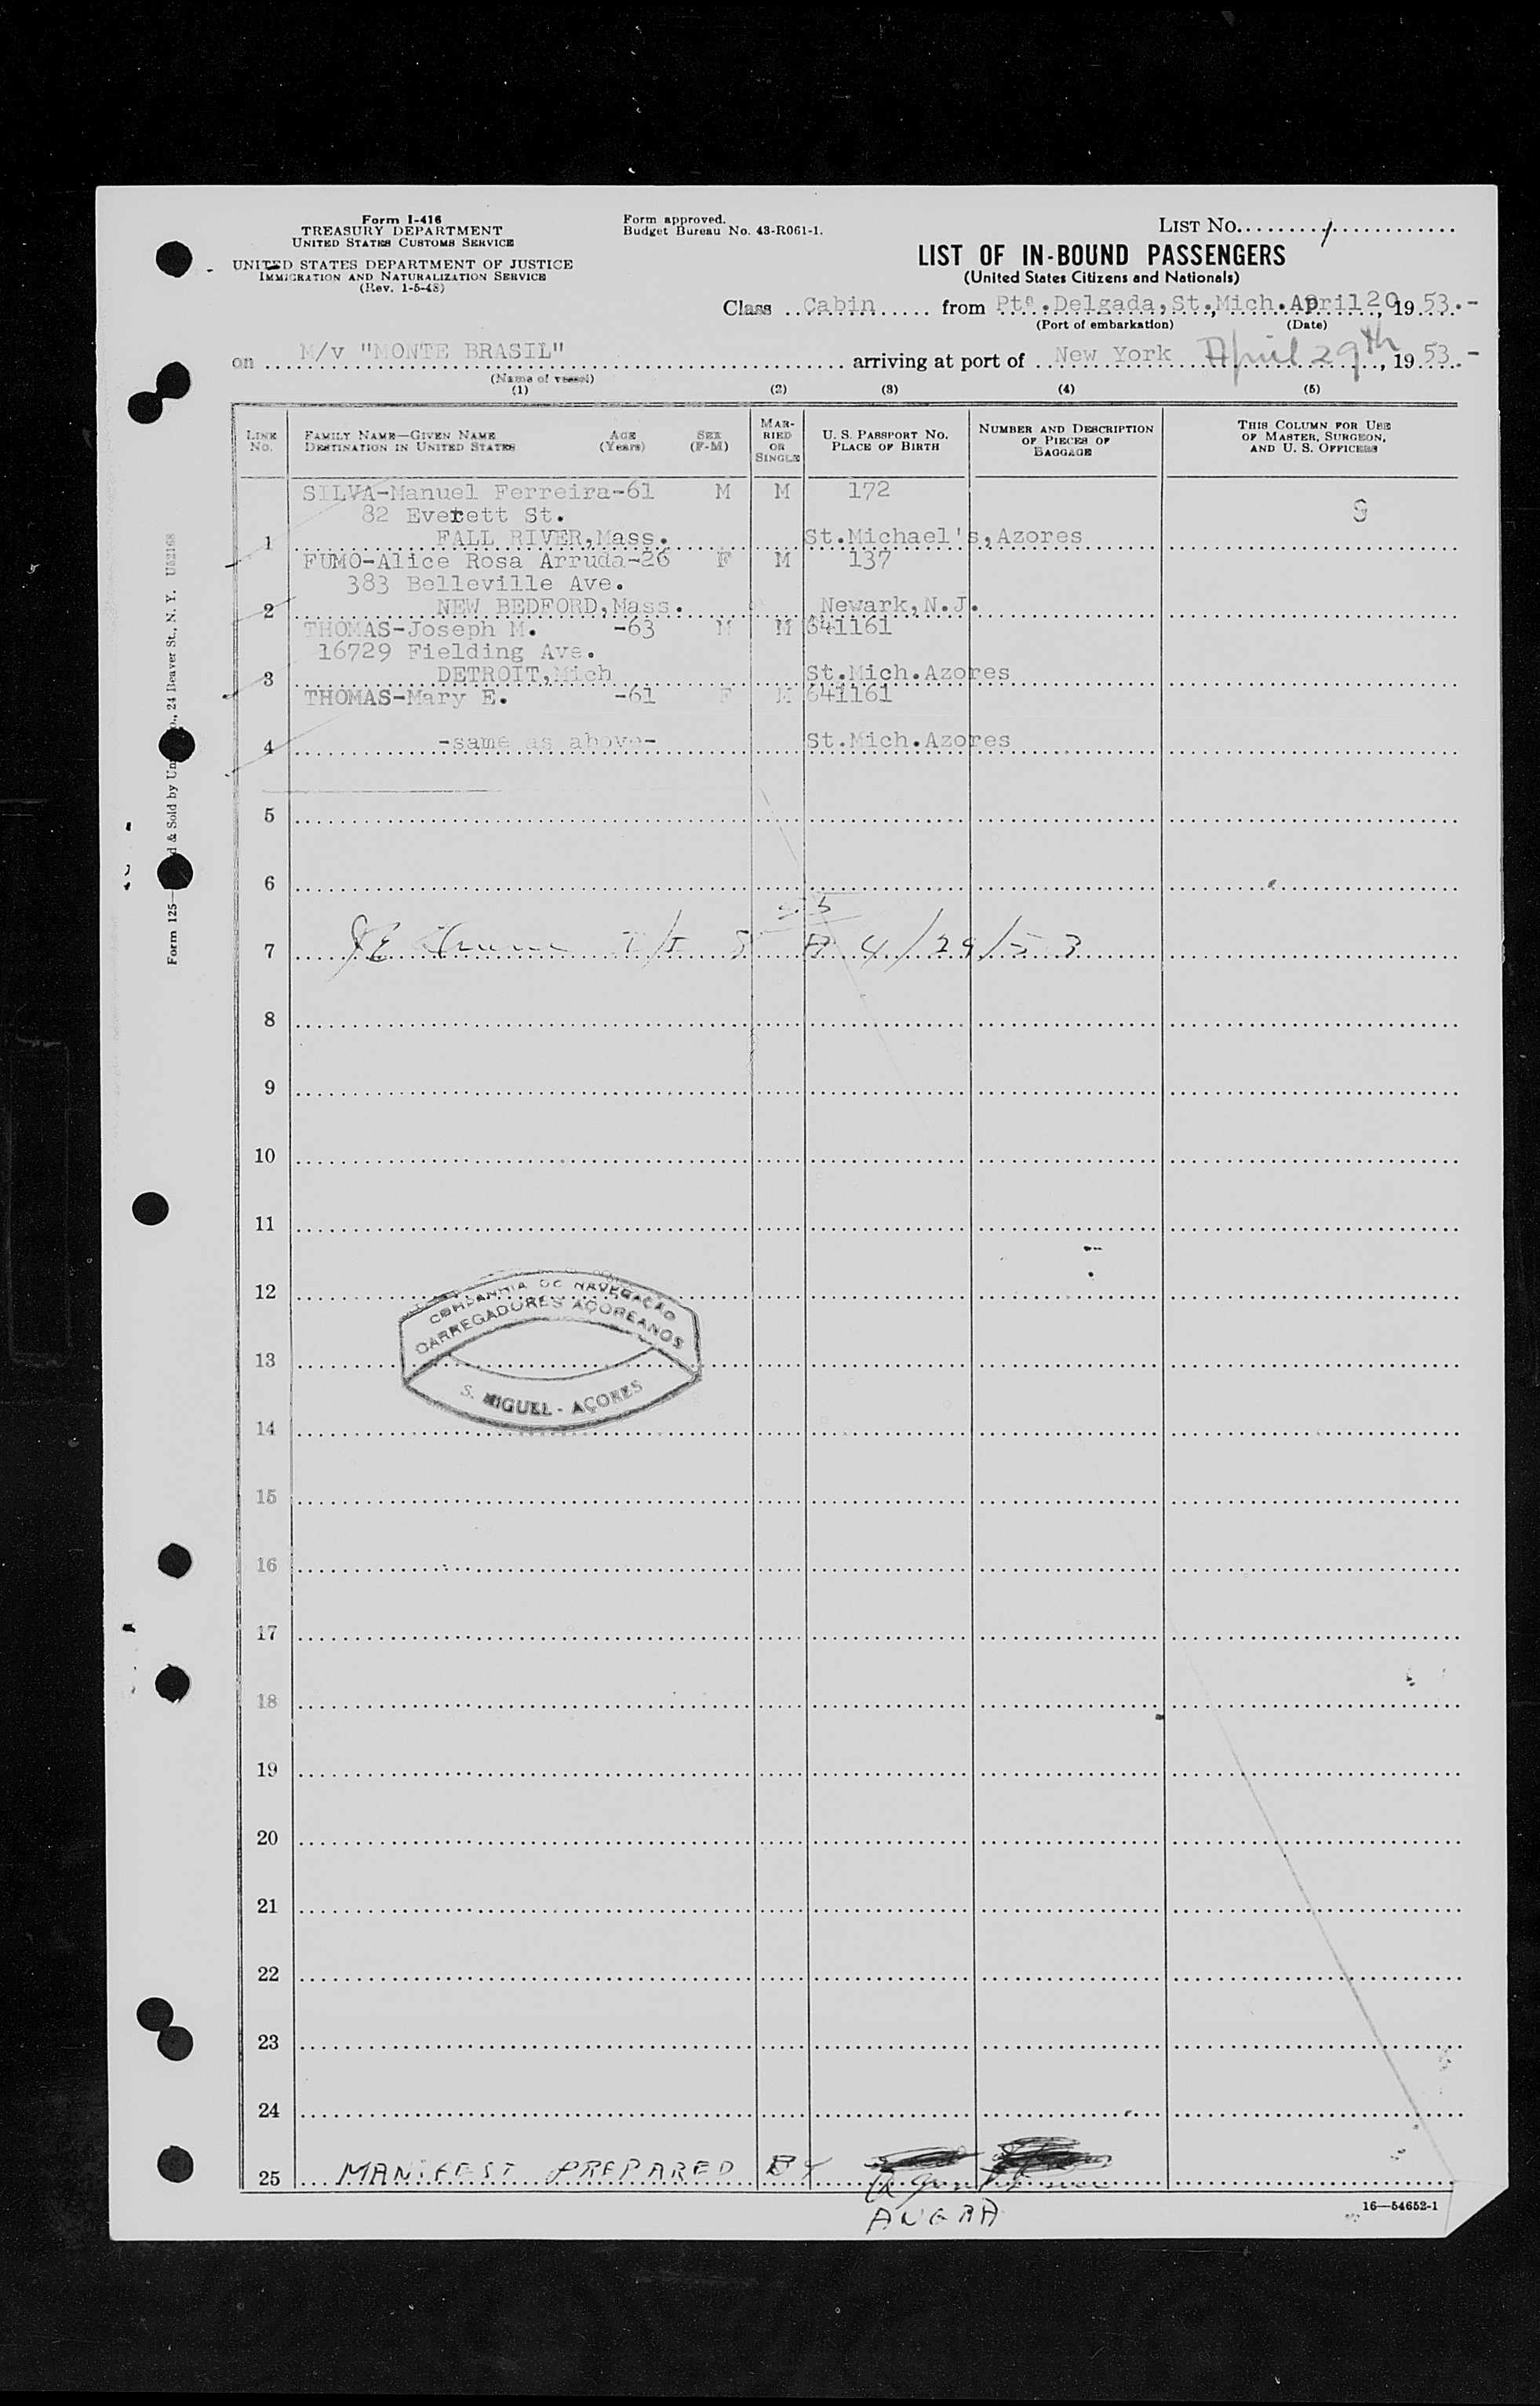 Form I-416
TREASURY DEPARTMENT
UNITED STATES CUSTOMS SERVICE
UNITED STATES DEPARTMENT OF JUSTICE
IMMIGRATION AND NATURALIZATION SERVICE
(Rev. 1-5-48)
Form approved.
Budget Bureau No. 43-R061-1.
LIST No. 1
LIST OF IN-BOUND PASSENGERS
(United States Citizens and Nationals)
Class Cabin from Ptª.Delgada,St.Mich. April 20, 19 53.-
(Port of embarkation) (Date)
on M/v "MONTE BRASIL" arriving at port of New York April 29th, 19 53.-
(Name of vessel)
(1) (2) (3) (4) (5)
LINE No. FAMILY NAME—GIVEN NAME DESTINATION IN UNITED STATES AGE (Years) SEX (F-M) MARRIED OR SINGLE U. S. PASSPORT No. PLACE OF BIRTH NUMBER AND DESCRIPTION OF PIECES OF BAGGAGE THIS COLUMN FOR USE OF MASTER, SURGEON, AND U. S. OFFICERS
SILVA-Manuel Ferreira-61 M M 172
82 Everett St.
1 FALL RIVER,Mass. St.Michael's,Azores
FUMO-Alice Rosa Arruda-26 F M 137
383 Belleville Ave.
2 NEW BEDFORD,Mass. Newark,N.J.
THOMAS-Joseph M. -63 M M 641161
16729 Fielding Ave.
3 DETROIT,Mich St.Mich.Azores
THOMAS-Mary E. -61 F M 641161
4 -same as above- St.Mich.Azores
5
6
7 4/29/53
8
9
10
11
12
13
14
15
16
17
18
19
20
21
22
23
24
25 MANIFEST PREPARED BY
ANGRA
COMPANHIA DE NAVEGAÇÃO
CARREGADORES AÇOREANOS
S. MIGUEL - AÇORES
16—54652-1
Form 125— & Sold by Un 24 Beaver St., N. Y.